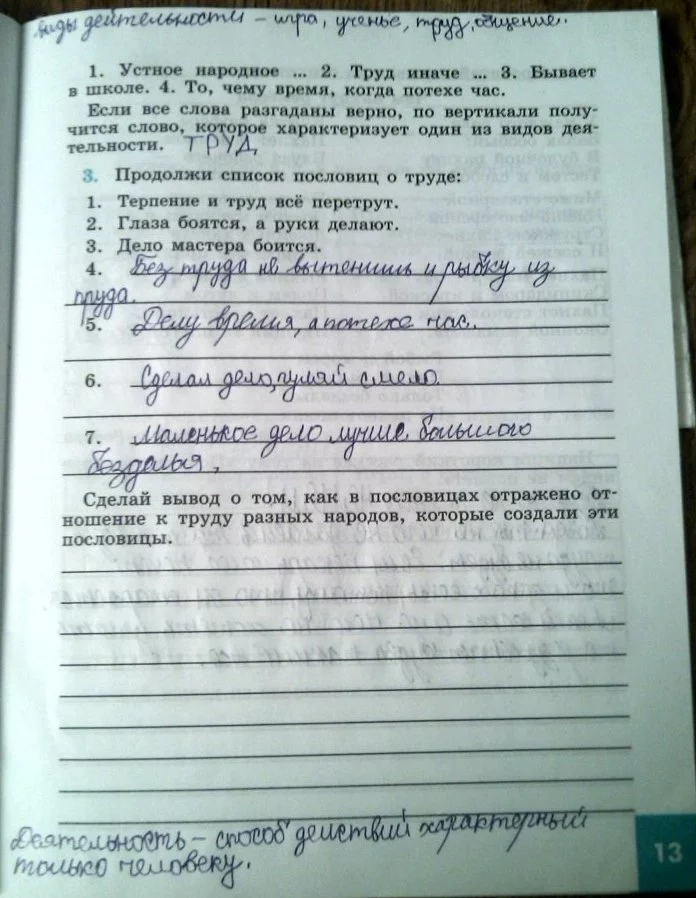 виды деятельности – игра, ученье, труд, общение.
1. Устное народное ... 2. Труд иначе ... 3. Бывает
в школе. 4. То, чему время, когда потехе час.
Если все слова разгаданы верно, по вертикали полу-
чится слово, которое характеризует один из видов дея-
тельности. ТРУД
3. Продолжи список пословиц о труде:
1. Терпение и труд всё перетрут.
2. Глаза боятся, а руки делают.
3. Дело мастера боится.
4. Без труда не вытенишь и рыбку из
пруда.
5. Делу время, а потехе час.
6. Сделал дело, гуляй смело.
7. Маленькое дело лучше большого
безделья,
Сделай вывод о том, как в пословицах отражено от-
ношение к труду разных народов, которые создали эти
пословицы.
Деятельность – способ действий характерный
только человеку.
13